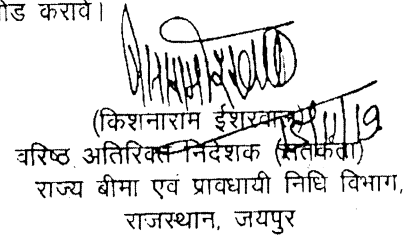 ोड करावे।
(किशनाराम ईशरवाल)
वरिष्ठ अतिरिक्त निदेशक (सतर्कता)
राज्य बीमा एवं प्रावधायी निधि विभाग,
राजस्थान, जयपुर